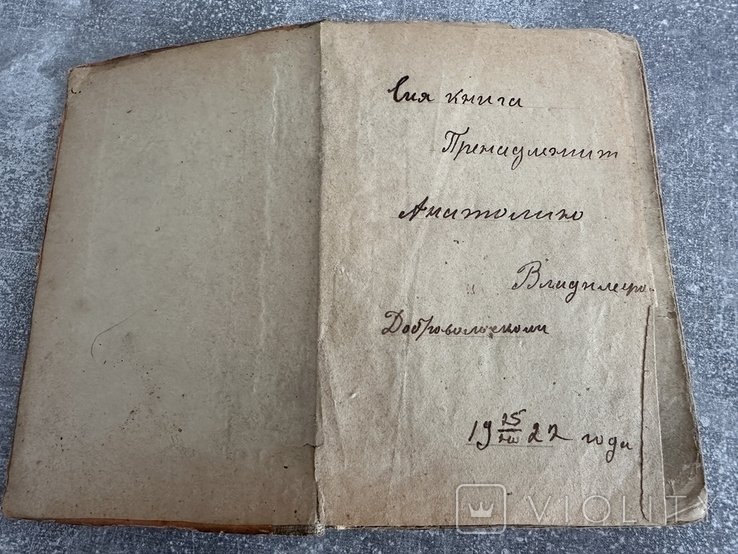 Сия книга
Пренадлежит
Анатолию
Владимеро
Добровольскому
19 25/VIII 22 года
VIOLITY